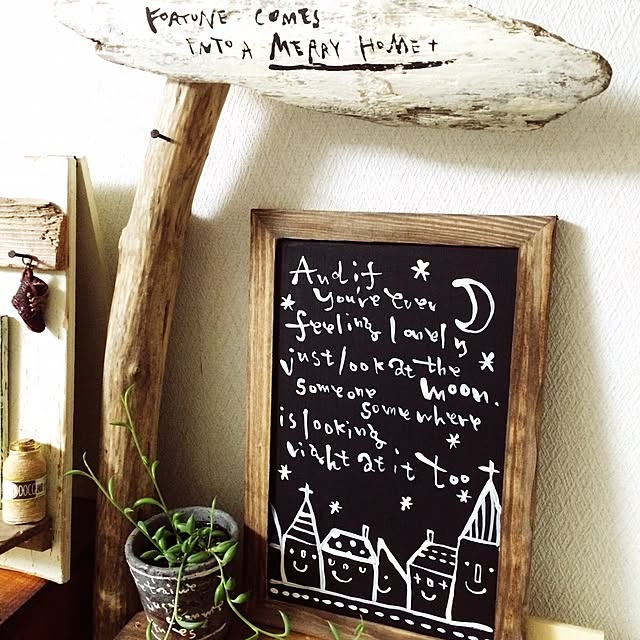 FORTUNE COMES
INTO A MERRY HOME
And if
you're ever
feeling lonely
just look at the
moon.
someone
somewhere
is looking
right at it too